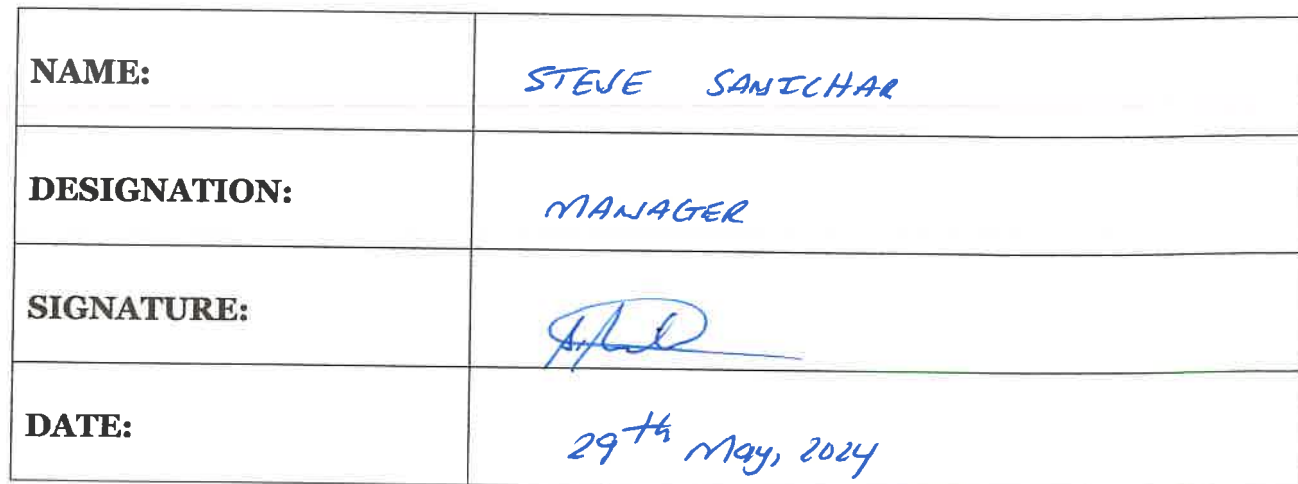 NAME: STEVE SANICHAR
DESIGNATION: MANAGER
SIGNATURE:
DATE: 29th May, 2024